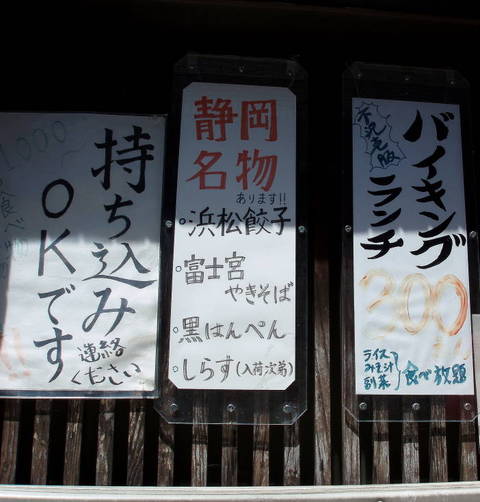 持ち込み
OKです
連絡
ください
静岡
名物
あります!!
・浜松餃子
・富士宮
やきそば
・黒はんぺん
・しらす(入荷次第)
バイキング
ランチ
ライス
みそ汁
副菜
食べ放題